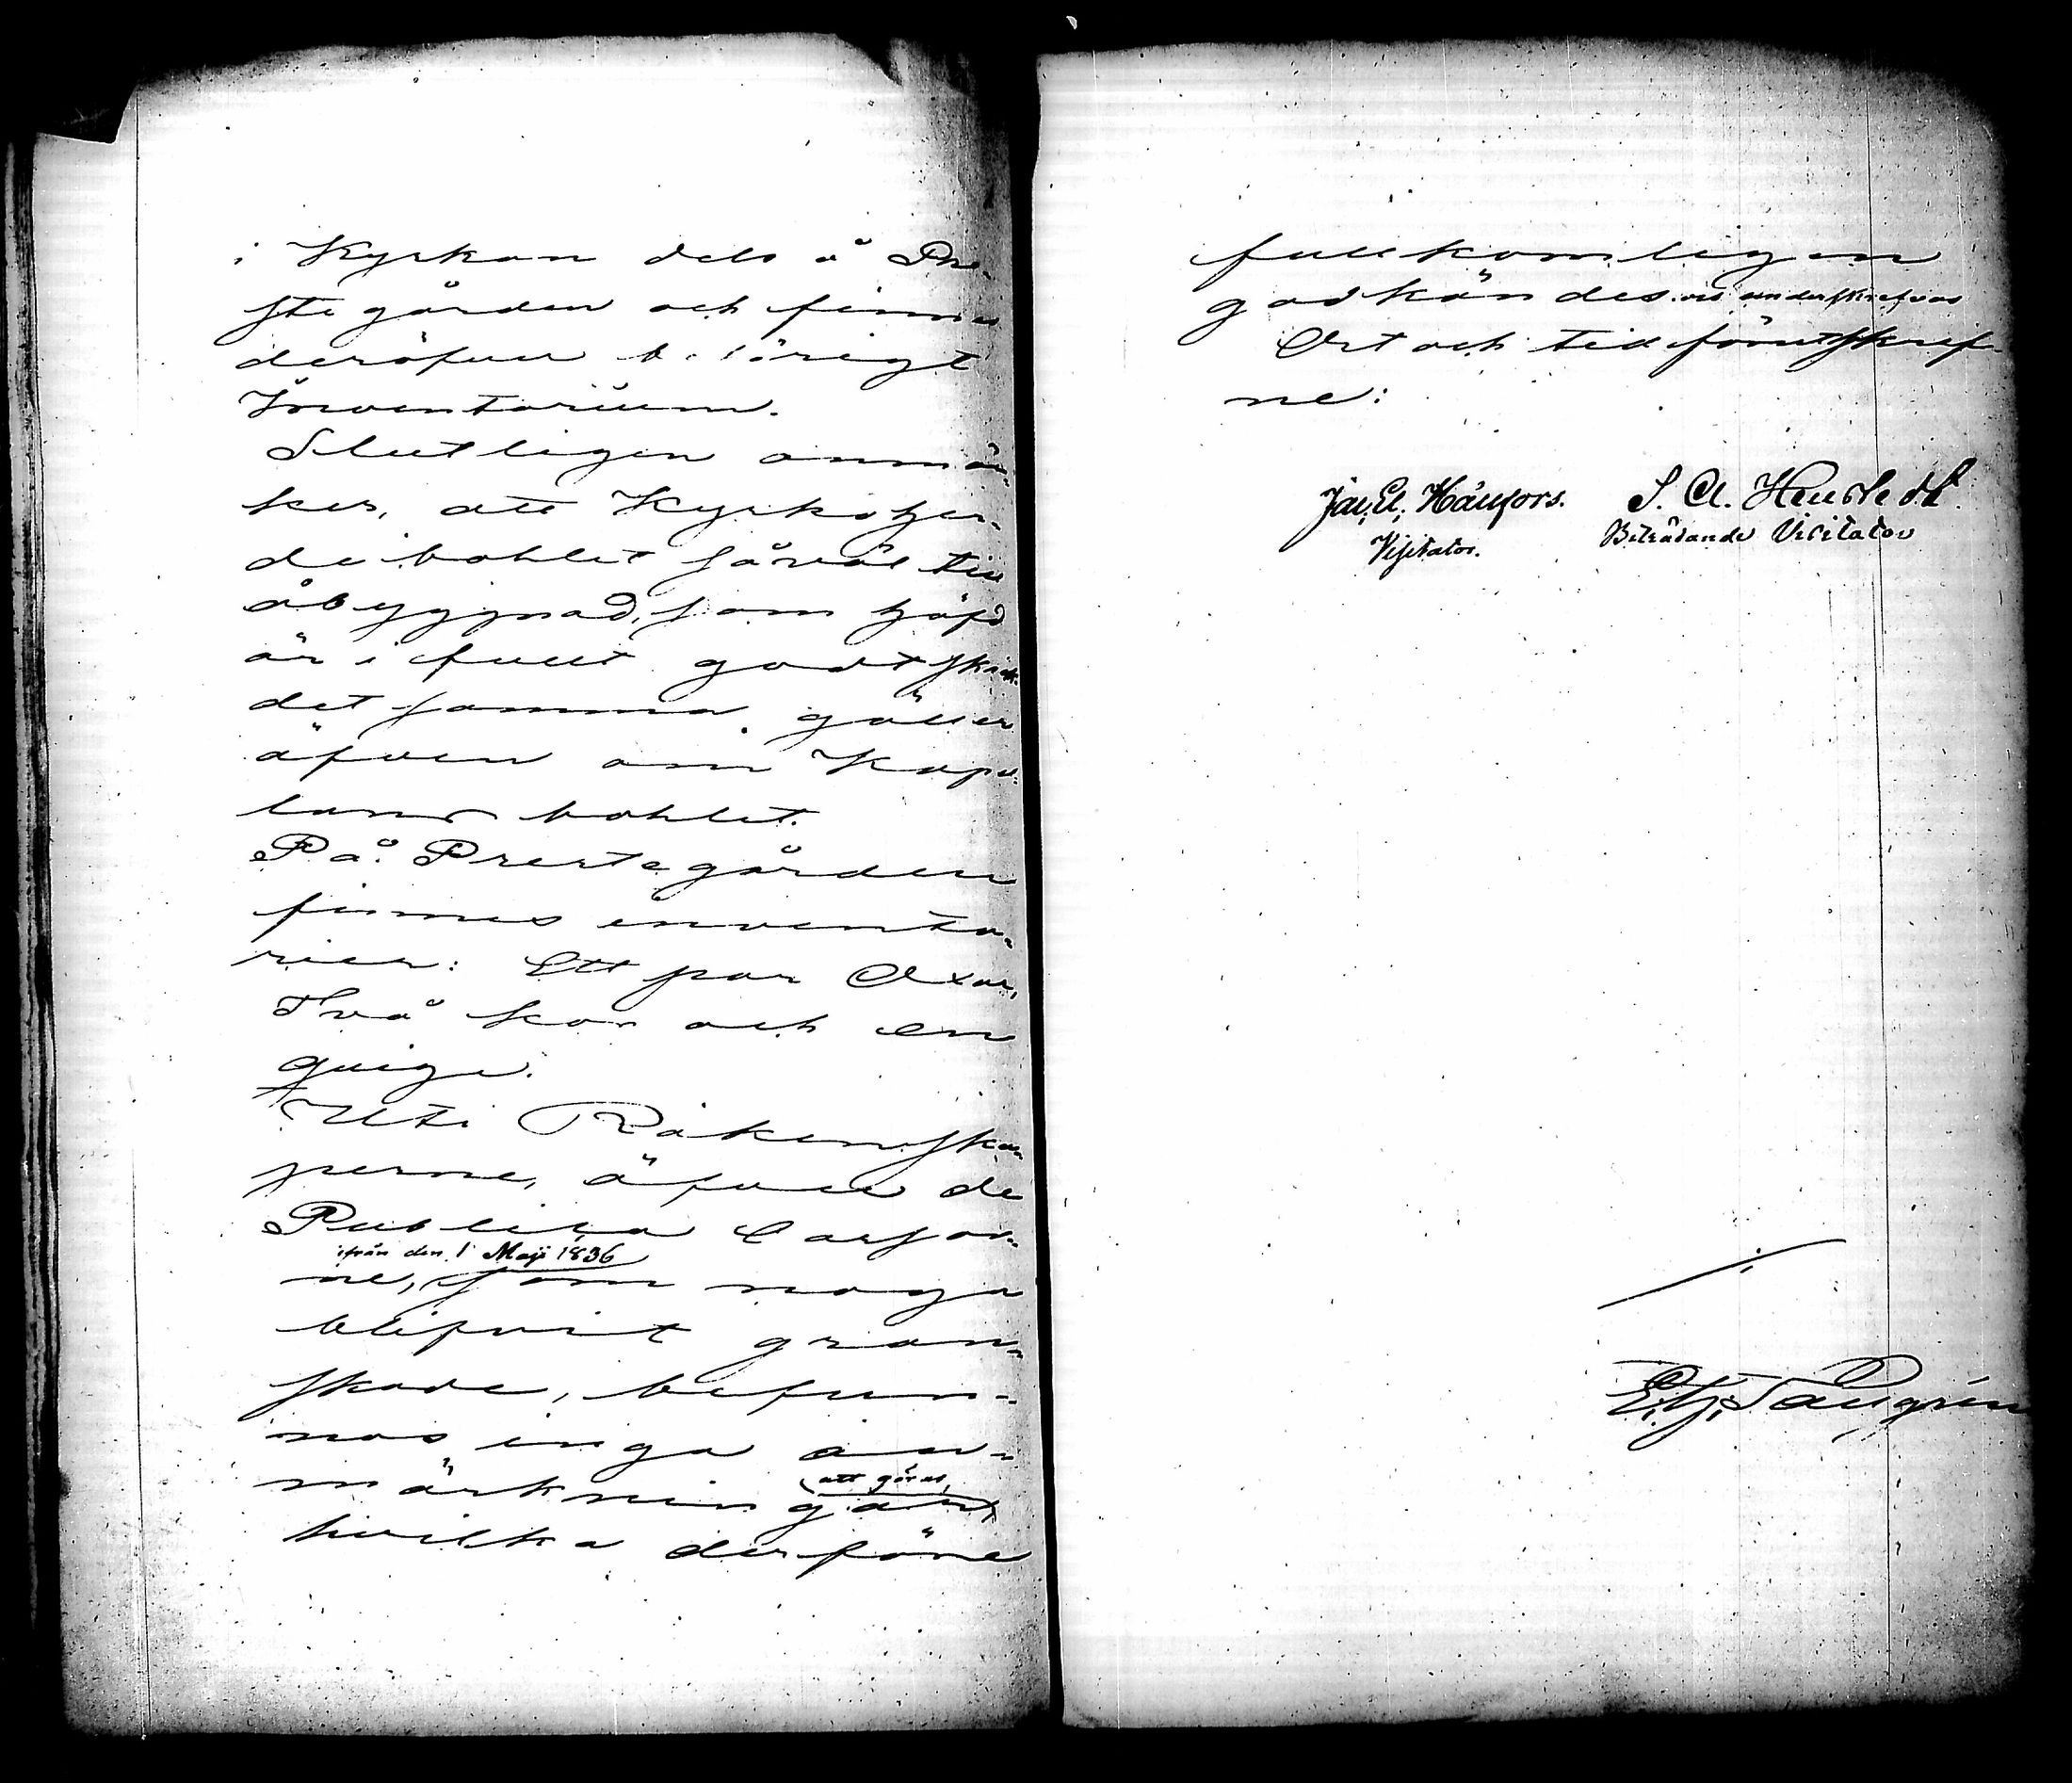 i Kyrkan dels å Pre-
stegården och finnes
deröfver behörigt
Inventarium.
Slutligen anmär-
kes, att Kyrkoher-
debohlet såväl till
åbyggnad, som häfd
är i fullt godt skick
det samma gäller
äfven om Kapel-
lans bohlet.
På Prestegården
finnes invento-
rier: Ett par Oxar,
Två kor och en
quiga.
Uti Räkenska-
perne, äfven de
Publika Cassor-
ifrån den 1 Maji 1836
ne, som noga
blifvit gran-
skade, befun-
nos inga an-
att göras
märkningar,
hvilka derföre
fullkomligen
godkändes underskrefvos
Ort och tid förutskref-
ne:
S. A.
Visitator. Biträdande Visitator